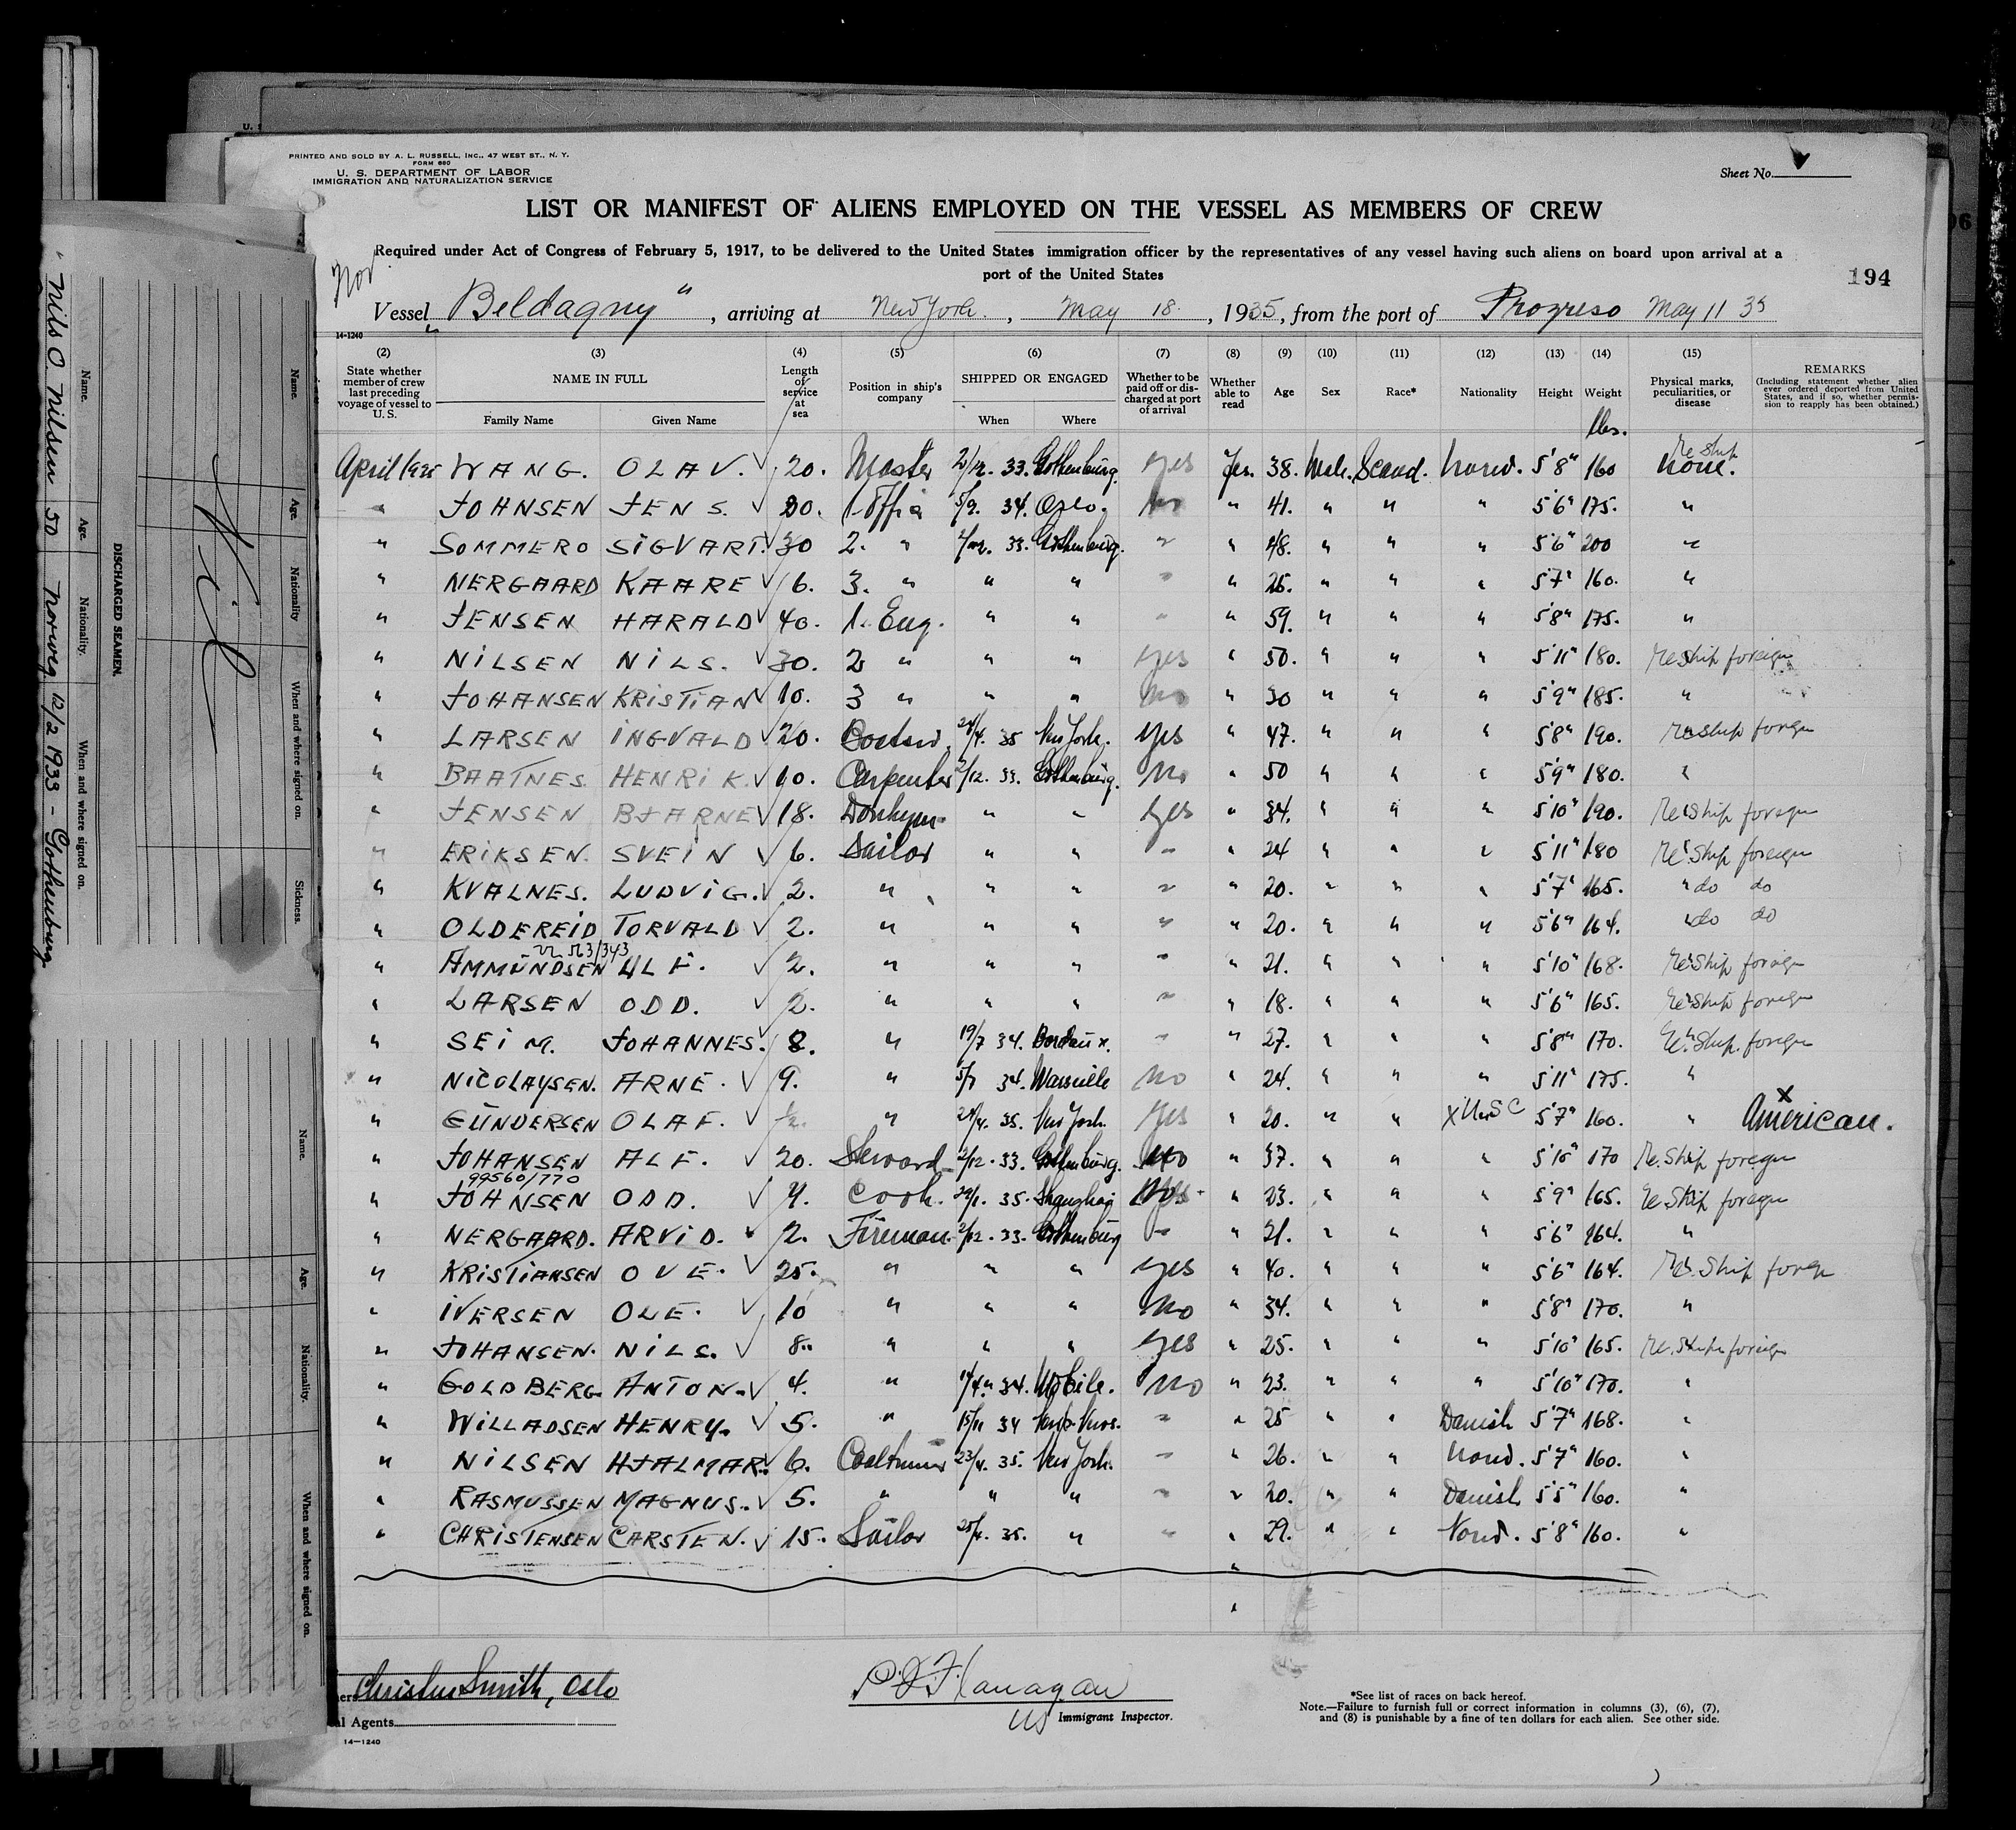 PRINTED AND SOLD BY A. L. RUSSELL, INC., 47 WEST ST., N. Y.
FORM 660
U. S. DEPARTMENT OF LABOR
IMMIGRATION AND NATURALIZATION SERVICE
Sheet No.
LIST OR MANIFEST OF ALIENS EMPLOYED ON THE VESSEL AS MEMBERS OF CREW
Required under Act of Congress of February 5, 1917, to be delivered to the United States immigration officer by the representatives of any vessel having such aliens on board upon arrival at a
port of the United States
Nor
194
Vessel "Beldagny", arriving at New York, May 18, 1935, from the port of Progreso May 11 35
14-1240
(2) (3) (4) (5) (6) (7) (8) (9) (10) (11) (12) (13) (14) (15)
State whether member of crew last preceding voyage of vessel to U. S. NAME IN FULL Family Name Given Name Length of service at sea Position in ship's company SHIPPED OR ENGAGED When Where Whether to be paid off or discharged at port of arrival Whether able to read Age Sex Race* Nationality Height Weight Physical marks, peculiarities, or disease REMARKS (Including statement whether alien ever ordered deported from United States, and if so, whether permission to reapply has been obtained.)
lbs.
Re Ship
April 1935 WANG. OLAV. √ 20. Master 2/12. 33. Gothenburg. yes Yes. 38. Male. Scand. Norw. 5'8" 160 None.
" JOHNSEN JENS. √ 20. 1. Offic 5/9. 34. Oslo. No " 41. " " " 5'6" 175. "
" SOMMERO SIGVART. √ 30 2. " 2/12. 33. Gothenburg. " " 48. " " " 5'6" 200 "
" NERGAARD KAARE √ 6. 3. " " " " " 25. " " " 5'7" 160. "
" JENSEN HARALD √ 40. 1. Eng. " " " " 59. " " " 5'8" 175. "
" NILSEN NILS. √ 30. 2 " " " yes " 50. " " " 5'11" 180. Reship foreign
" JOHANSEN KRISTIAN √ 10. 3 " " " No " 30 " " " 5'9" 185. "
" LARSEN INGVALD √ 20. 24/4. 35 New York. yes " 47. " " " 5'8" 190. Reship foreign
" BAATNES. HENRIK. √ 10. Carpenter 2/12. 33. Gothenburg. No " 50 " " " 5'9" 180. "
" JENSEN BJARNE √ 18. Donkeym. " " yes " 34. " " " 5'10" 190. Re Ship foreign
" ERIKSEN. SVEIN √ 6. Sailor " " " " 24 " " " 5'11" 180 Re Ship foreign
" KVALNES. LUDVIG. √ 2. " " " " " 20. " " " 5'7" 165. " do do
" OLDEREID TORVALD √ 2. " " " " " 20. " " " 5'6" 164. " do do
" AMMUNDSEN ULF. √ 2. " " " " " 21. " " " 5'10" 168. Re Ship foreign
" LARSEN ODD. √ 2. " " " " " 18. " " " 5'6" 165. Re Ship foreign
" SEIM. JOHANNES. √ 8. " 19/7 34. Bordeaux. " " 27. " " " 5'8" 170. Re Ship foreign
" NICOLAYSEN. ARNE. √ 9. " 5/7 34. Marseille No " 24. " " " 5'11" 175. "
" GUNDERSEN OLAF. √ ½. " 24/4. 35. New York. Yes " 20. " " X USC 5'7" 160. " X American.
" JOHANSEN ALF. √ 20. Steward 2/12. 33. Gothenburg. No " 37. " " " 5'10" 170 Re. Ship foreign
99560/770
" JOHNSEN ODD. √ 4. Cook. 35. Shanghai Yes " 23. " " " 5'9" 165. Re Ship foreign
" NERGAARD. ARVID. 2. Fireman 2/12. 33. Gothenburg " " 21. " " " 5'6" 164. "
" KRISTIANSEN OVE. √ 25. " " " yes " 40. " " " 5'6" 164. Re. Ship foreign
" IVERSEN OLE. √ 10 " " " No " 34. " " " 5'8" 170. "
" JOHANSEN. NILS. √ 8. " " " yes " 25. " " " 5'10" 165. Re. Ship foreign
" GOLDBERG. ANTON. √ 4. " 34. Mobile. No " 23. " " " 5'10" 170. "
" WILLADSEN HENRY. √ 5. " 15/11 34 " " 25 " " Danish 5'7" 168. "
" NILSEN HJALMAR. √ 6. Coaltrimmer 23/4. 35. New York. " " 26. " " Norw. 5'7" 160. "
" RASMUSSEN MAGNUS. √ 5. " " " " " 20. " " Danish 5'5" 160. "
" CHRISTENSEN CARSTEN. √ 15. Sailor 25/4. 35. " " " 29. " " Norw. 5'8" 160. "
Smith, Oslo
al Agents
14-1240
P. J. Flanagan
US Immigrant Inspector.
*See list of races on back hereof.
Note.—Failure to furnish full or correct information in columns (3), (6), (7),
and (8) is punishable by a fine of ten dollars for each alien. See other side.
DISCHARGED SEAMEN.
Name. Age. Nationality When and where signed on. Sickness.
Nil
Name. Age. Nationality. When and where signed on.
" Nils O. Nilsen 50 Norweg 12/2 1933 - Gothenburg
Name. Age. Nationality. When and where signed on.